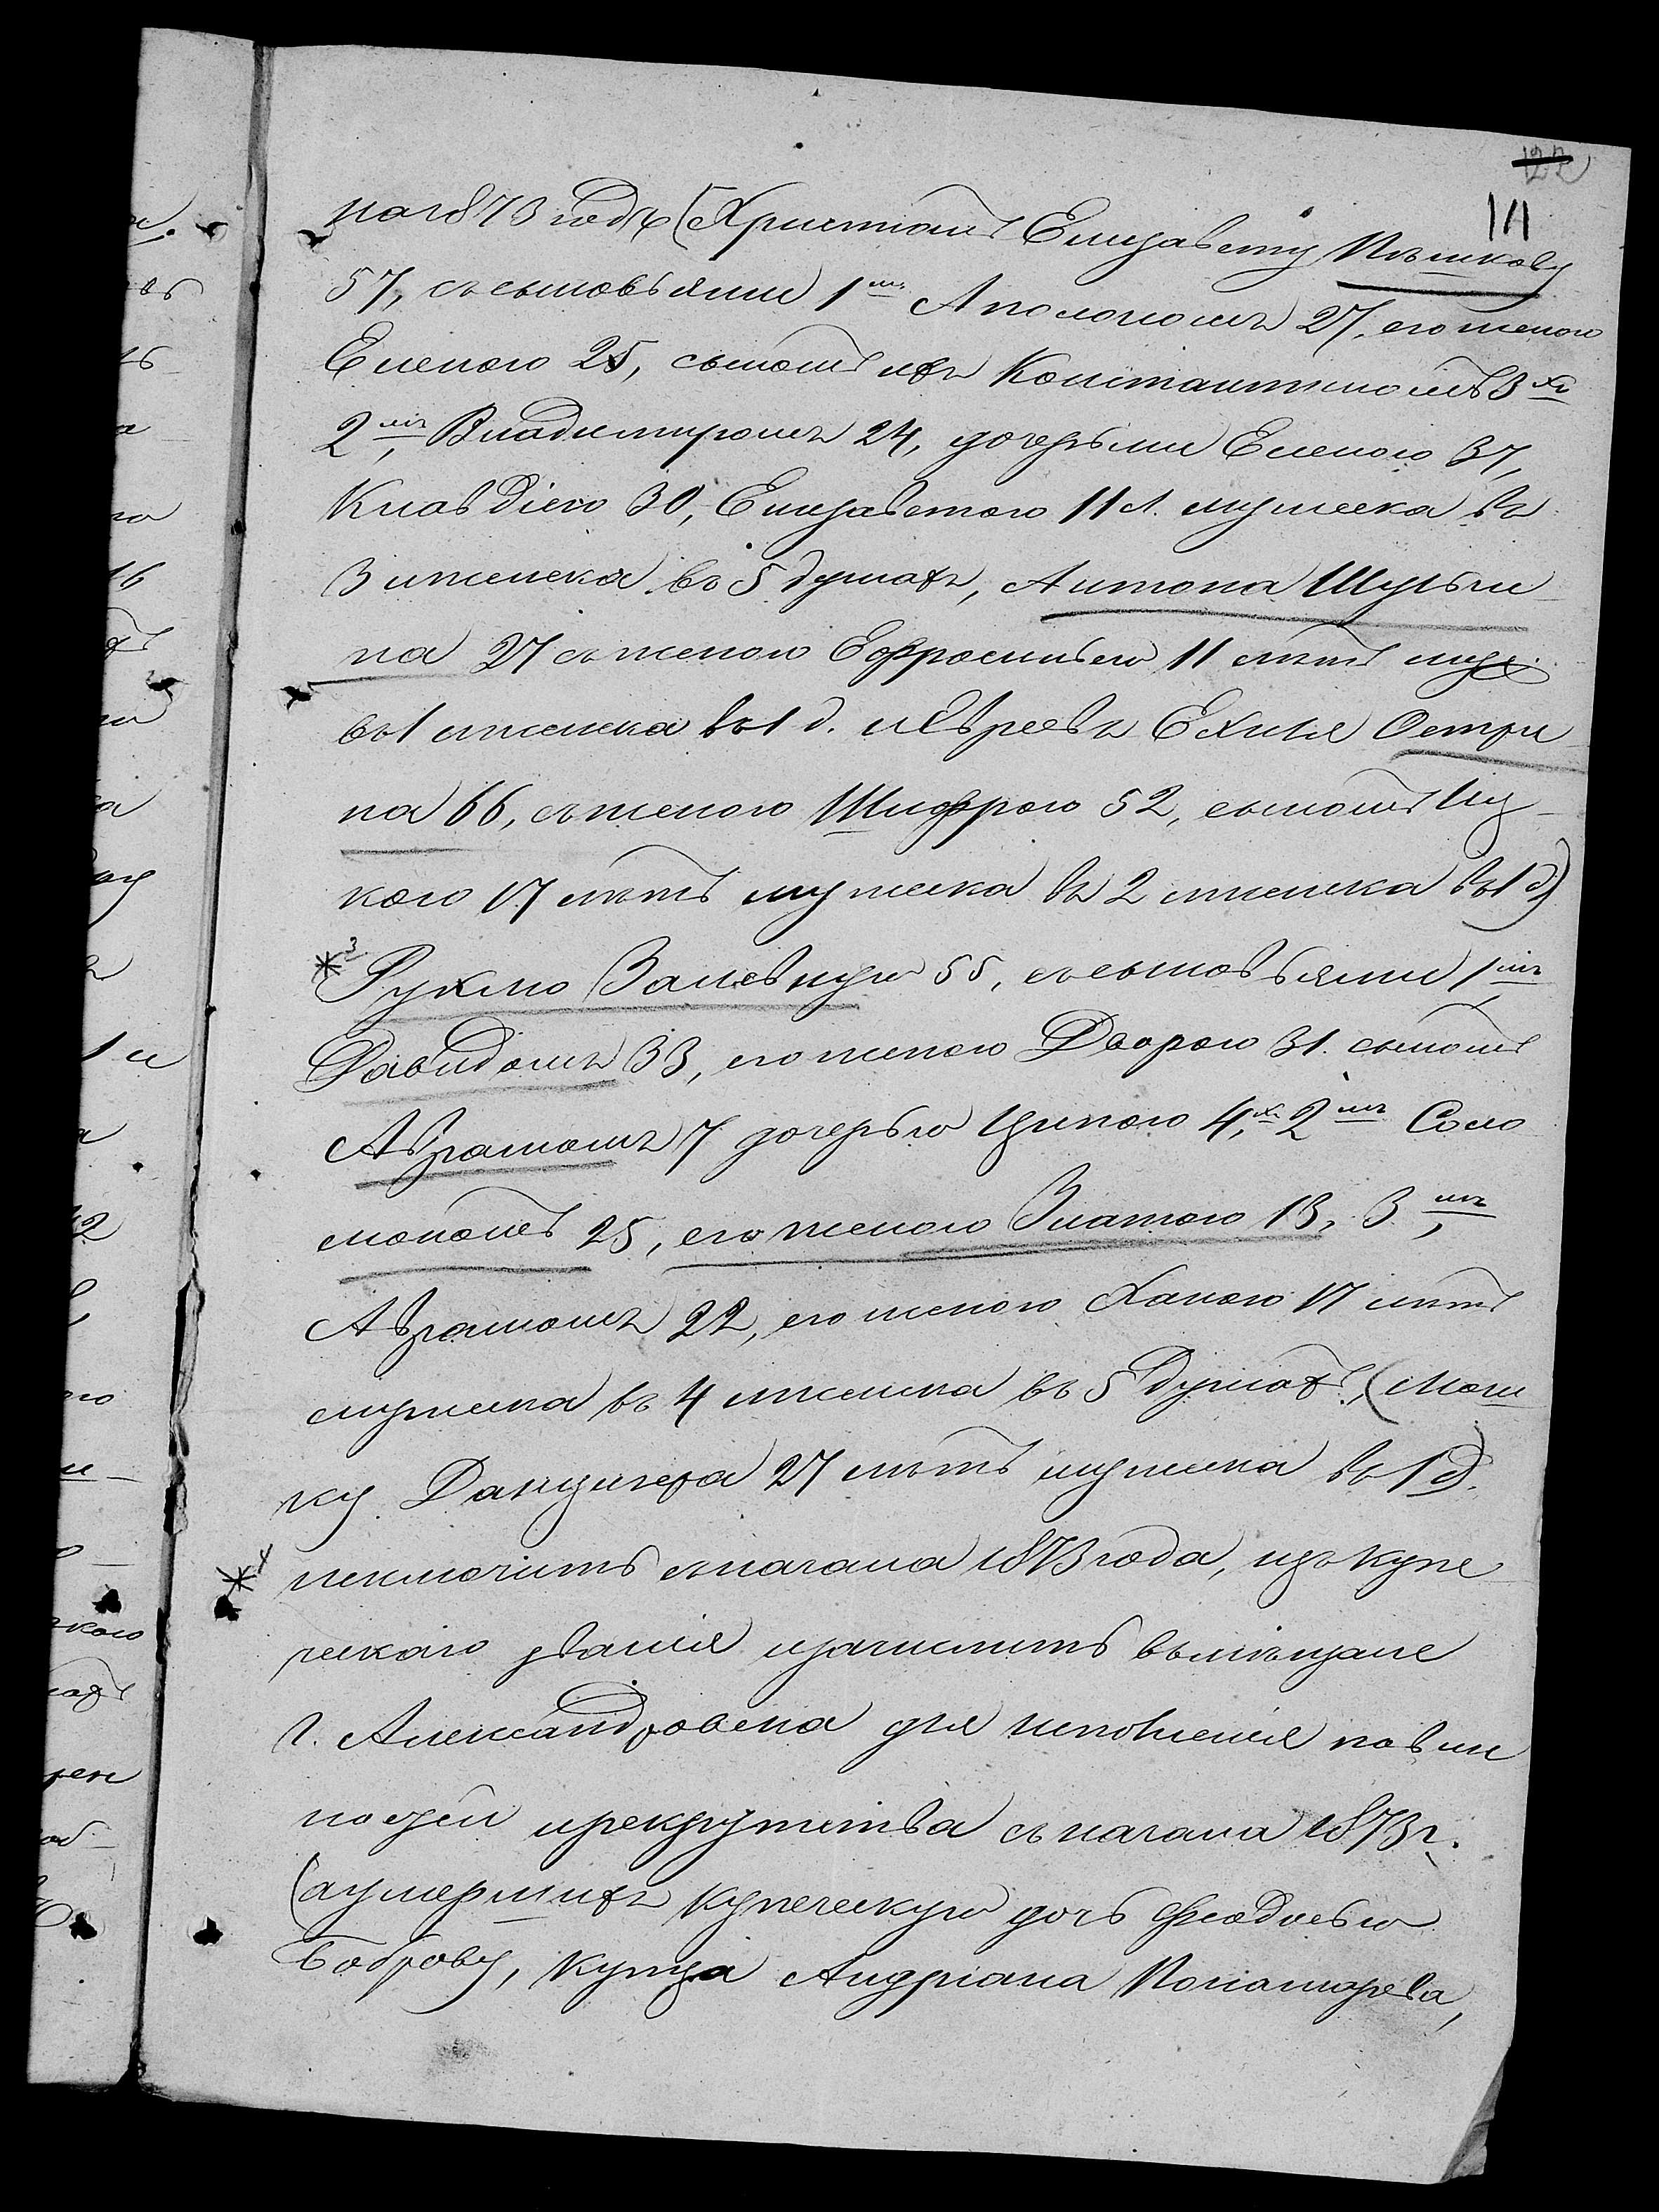 122
141
на 1873 годъ (Христіанъ Елизавету Пѣшкову
57, съ сыновьями 1мъ Аполономъ 27, его женою
Еленою 25, сыномъ ихъ Константиномъ 3хъ
2мъ, Владимиромъ 24, дочерьми Еленою 37,
Клавдіею 30, Елизаветою 11 л. мужеска въ
3 и женска въ 5 душахъ, Антона Шульги-
на 27 съ женою Ефросиньею 11 лѣтъ муж.
въ 1 и женска въ 1 д. и Евреевъ Ехиля Остри-
на 66, съ женою Шифрою 52, сыномъ Иц-
кою 17 лѣтъ мужеска въ 2 и женска въ 1 д)
*3 Рухлю Залевную 55, съ сыновьями 1мъ
Давидомъ 33, его женою Дворою 31. сыномъ
Абрамомъ 7 дочерью Ципою 4,хъ 2мъ Соло
мономъ 25, его женою Златою 13, 3мъ,
Абрамомъ 22, его женою Ханою 17 лѣтъ
мужеска въ 4 и женска въ 5 душахъ, (Мош
ку Данцигера 27 лѣтъ мужеска въ 1 д).
* исключить съ начала 1873 года, изъ купе
ческаго званія и зачислить въ мѣщане
г. Александровска для исполненія повин
ностей и рекрутства съ начала 1873 г.
(а умершихъ купеческую дочь Федосью
Боброву, купца Андріана Пономарева,